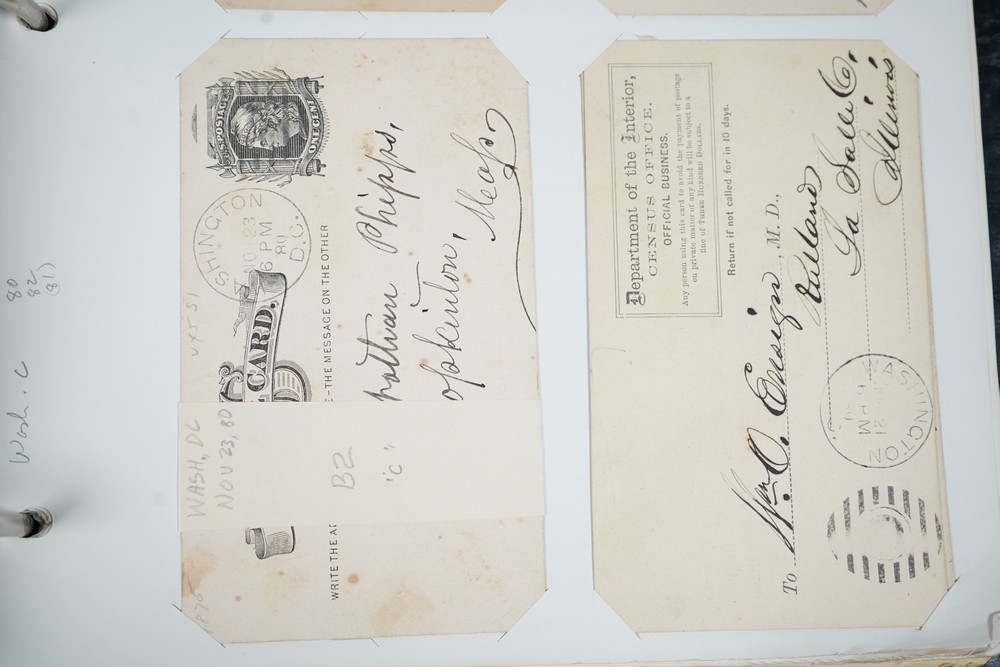 Wash. C
80
82
(81)
U.S. POSTAGE
ONE CENT
SHINGTON
23
6 PM
80
D.C.
CARD.
-THE MESSAGE ON THE OTHER
WRITE THE AD
Phipps,
opkinton,
WASH, DC
NOV 23, 80
B2
'C'
Department of the Interior,
CENSUS OFFICE.
OFFICIAL BUSINESS.
Any person using this card to avoid the payment of postage
on private matter of any kind will be subject to a
fine of Three Hundred Dollars.
Return if not called for in 10 days.
To Wm O. Ensign, M. D.,
Rutland
La Salle Co.
Illinois
6 PM
21